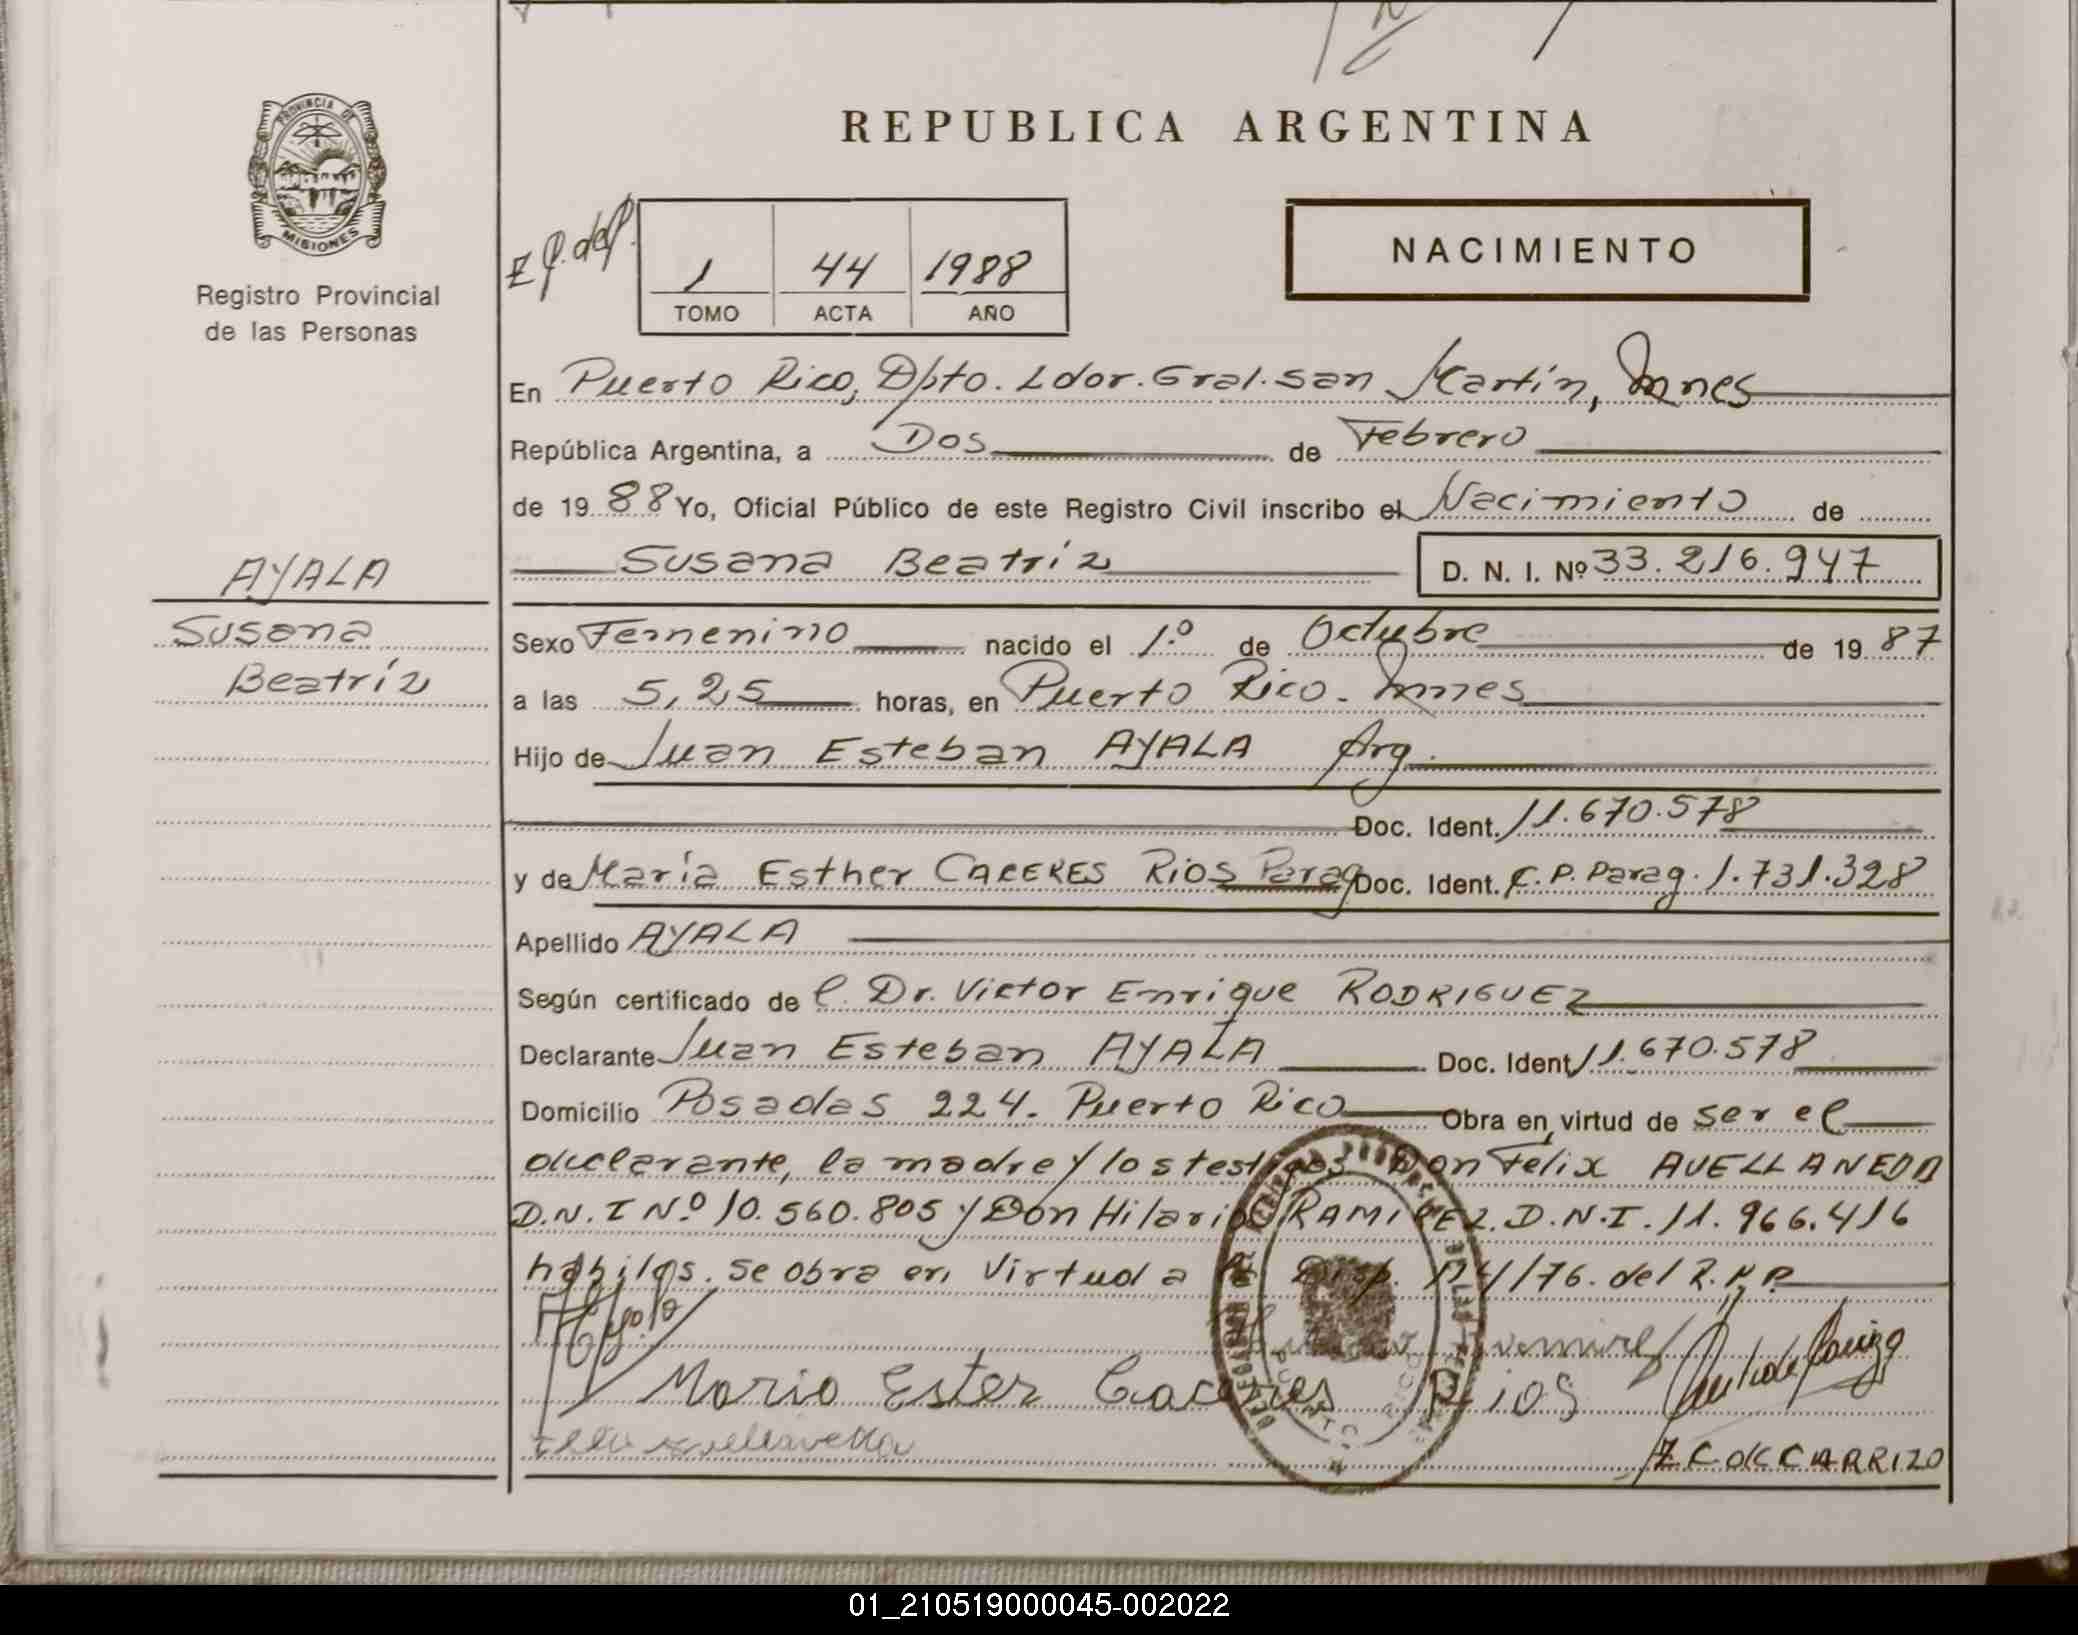 REPUBLICA ARGENTINA
PROVINCIA DE
MISIONES
Registro Provincial
de las Personas
1 44 1988
TOMO ACTA AÑO
NACIMIENTO
En Puerto Rico, Dpto. Ldor. Gral. San Martín, Mnes
República Argentina, a Dos de Febrero
de 1988 Yo, Oficial Público de este Registro Civil inscribo el Nacimiento de
Susana Beatríz D. N. I. Nº 33.216.947
AYALA
Susana
Beatríz
Sexo Femenino nacido el 1.º de Octubre de 1987
a las 5,25 horas, en Puerto Rico. Mnes
Hijo de Juan Esteban AYALA Arg.
Doc. Ident. 11.670.578
y de María Esther CACERES RIOS Parag Doc. Ident. C.P. Parag. 1.731.328
Apellido AYALA
Según certificado del Dr. Victor Enrique RODRIGUEZ
Declarante Juan Esteban AYALA Doc. Ident 11.670.578
Domicilio Posadas 224. Puerto Rico Obra en virtud de ser el
declarante, la madre y los testigos Don Felix AVELLANEDA
D.N.I Nº 10.560.805 y Don Hilario RAMIREZ. D.N.I. 11.966.416
habiles. se obra en Virtud a la Disp. 114/76. del R.P.P.
Ayala
Maria Ester Caceres Rios
Z C de CARRIZO
01_210519000045-002022